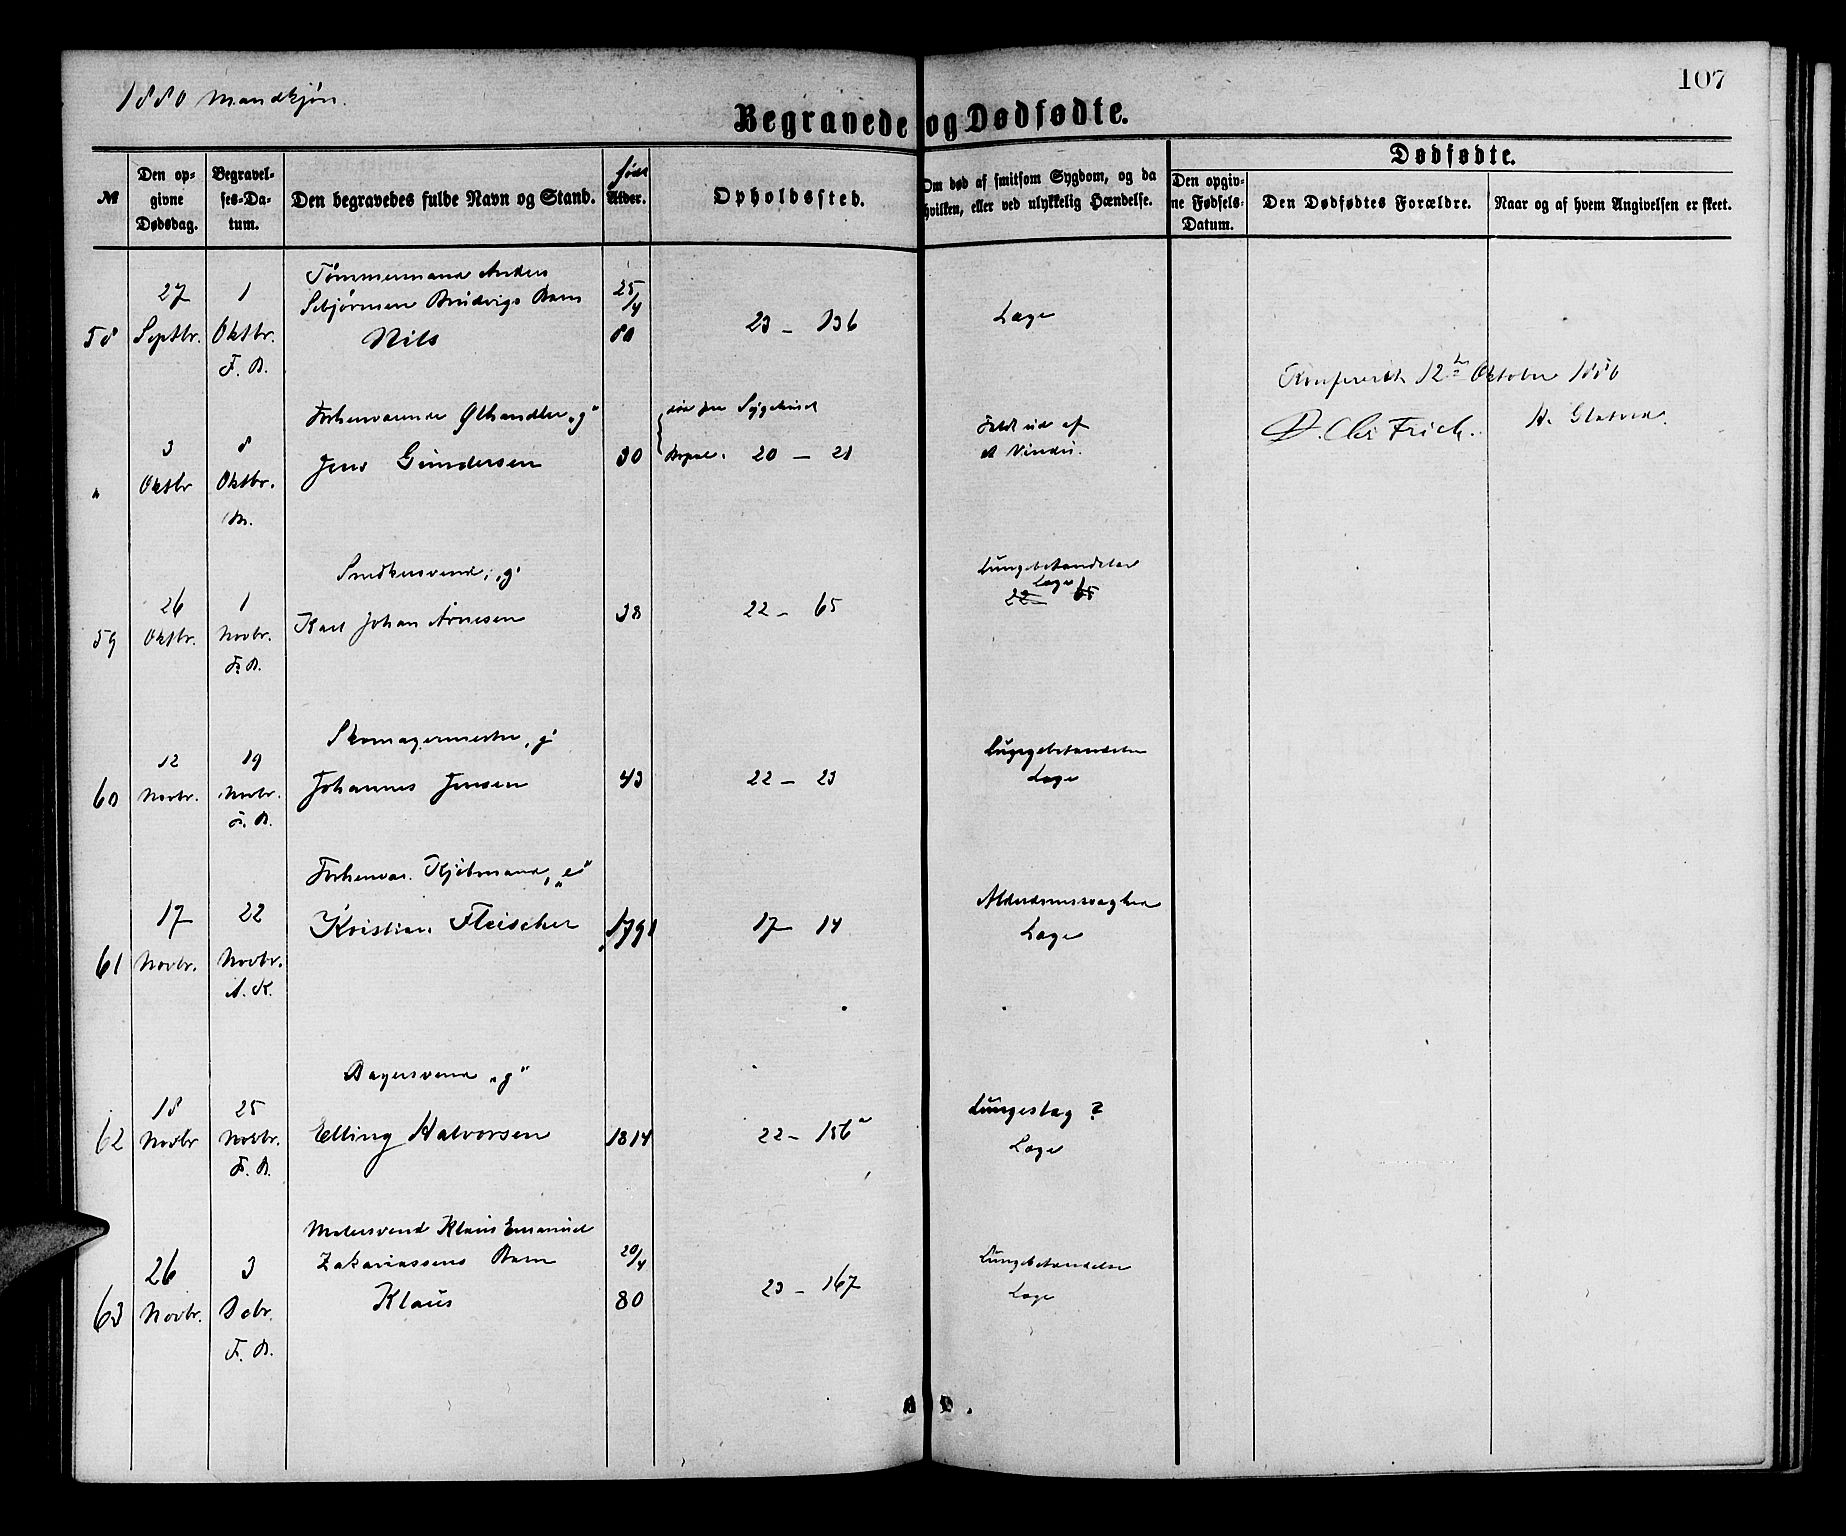 107
1880 Mandkjøn.
Begravede og Dødfødte.
Dødfødte.
№
Den op-
givne
Dødsdag.
Begravel-
ses-Da-
tum.
Den begravedes fulde Navn og Stand.
født
Alder.
Opholdssted.
Om død af smitsom Sygdom, og da
hvilken, eller ved ulykkelig Hændelse.
Den opgiv-
ne Fødsels-
Datum.
Den Dødfødtes Forældre.
Naar og af hvem Angivelsen er skeet.
58
27
Septbr.
1
Oktbr.
F. B.
Tømmermand Anders
Barn
Nils
25/4
80
23 - 136
Læge
Konfereret 12te Oktober 1880
D. Chr Frich.
"
3
Oktbr
8
Oktbr.
Forhenværende Ølhandler "g"
Jens Gundersen
30
Sygehuset
Bopæl. 20 - 21
Faldt ud af
et Vindu.
59
26
Oktbr.
1
Novbr.
F. B.
Snedkersvend, "g"
Karl Johan Arnesen
38
22 - 65
Lungebetændelse
Læge
22 65
60
12
Novbr.
19
Novbr.
F. B.
Skomagermester "g"
Johannes Jensen
43
22 - 23
Lungebetændelse
Læge
61
17
Novbr.
22
Novbr.
A. K.
Forhenvær. Kjøbmand, "e"
Kristian Fleischer
1791
17 - 14
Alderdomssvaghed
Læge
62
18
Novbr
25
Novbr.
F. B.
Bagersvend "g"
Elling Halvorsen
1814
22 - 156a
Lungeslag ?
Læge
63
26
Novbr.
3
Debr.
F. B.
Malersvend Klaus Emanuel
Zakariassens Barn
Klaus
20/4
80
23 - 167
Lungebetændelse
Læge